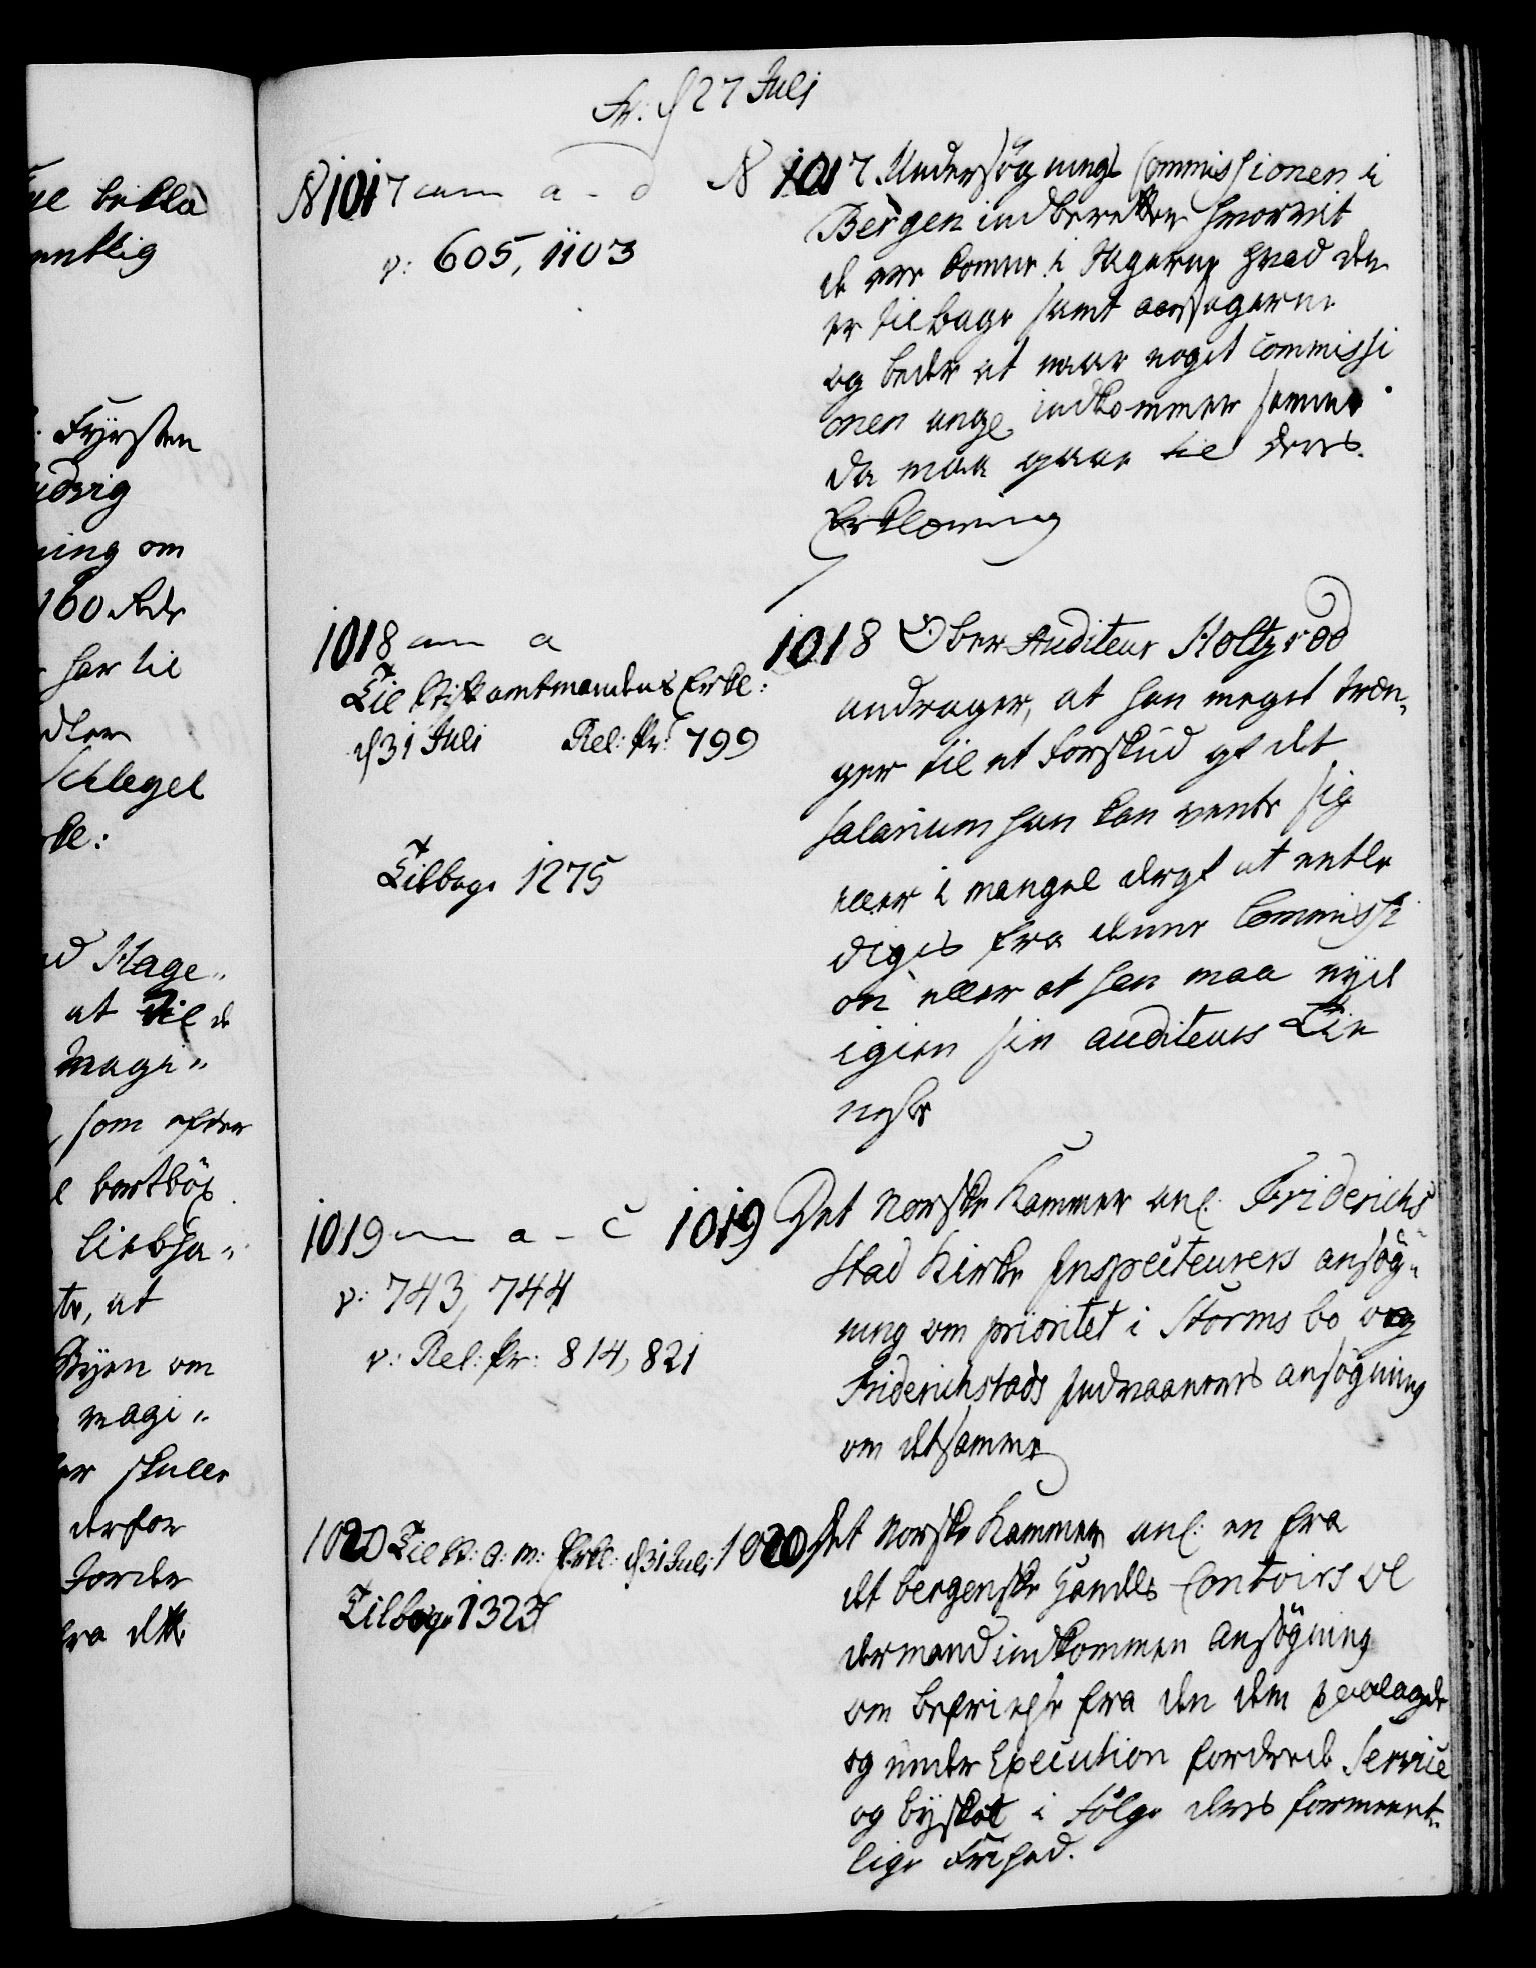 Fr: d 27 Julj
N 1017 cum a - d
v: 605, 1103
N 1017. Undersøgnings Commissionen i
Bergen indberetter hvorvit
de ere komne i Sagerne hvad der
er tilbage samt aarsagerne
og beder at naar noget Commissi
onen ang. indkommer samme
da maa gaae til deres
Erklæring
1018 cum a
Til Stiftamtmandens Erkl:
d 31 Juli Rel: Pr: 799
Tilbage 1275
1018 Ober Auditeur Holtzrød
andrager, at han meget træn„
ger til et Forskud af det
salarium han kan vente sig
eller i mangel deraf at entle
diges fra denne Commissi
on eller at han maa nyde
igien sin auditeurs Tie
neste
1019 cum a - c
v: 743, 744
v: Rel: Pr: 814, 821
1019 Det Norske Kammer anl. Friderichs
stad Kirke Inspecteurers ansøg„
ning om prioritet i Storms bo og
Friderichstads Indvaaneres ansøgning
om det samme
1020 Til St: A: M: Erkl: d 31 Juli
Tilbage 1323
1020 Det Norske Kammer anl: en fra
det bergenske Handels Contoirs Ol
dermand indkommen Ansøgning
om befrielse fra den dem paalagde
og under Execution fordrede Service
og byskat i Følge deres formeent„
lige Frihed.
ud Hage„
at til de
magi„
, som efter
liebha„
te, at
Byen om
magi„
er skulle
derfor
fra dette
Fyrsten
udvig
ning om
160 Rdr
har til
dler
Schlegel
kl: